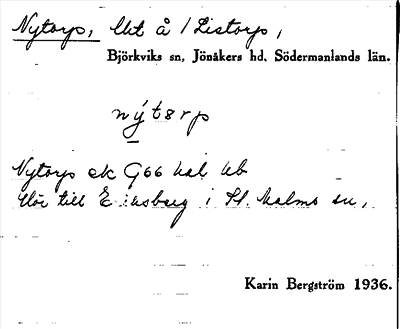 Nytorp, lht å /Listorp,
Björkviks sn, Jönåkers hd, Södermanlands län.
nýtɔrp
Nytorp ek G66 hal kb
Hör till Eriksberg i St. Malms sn,
Karin Bergström 1936.